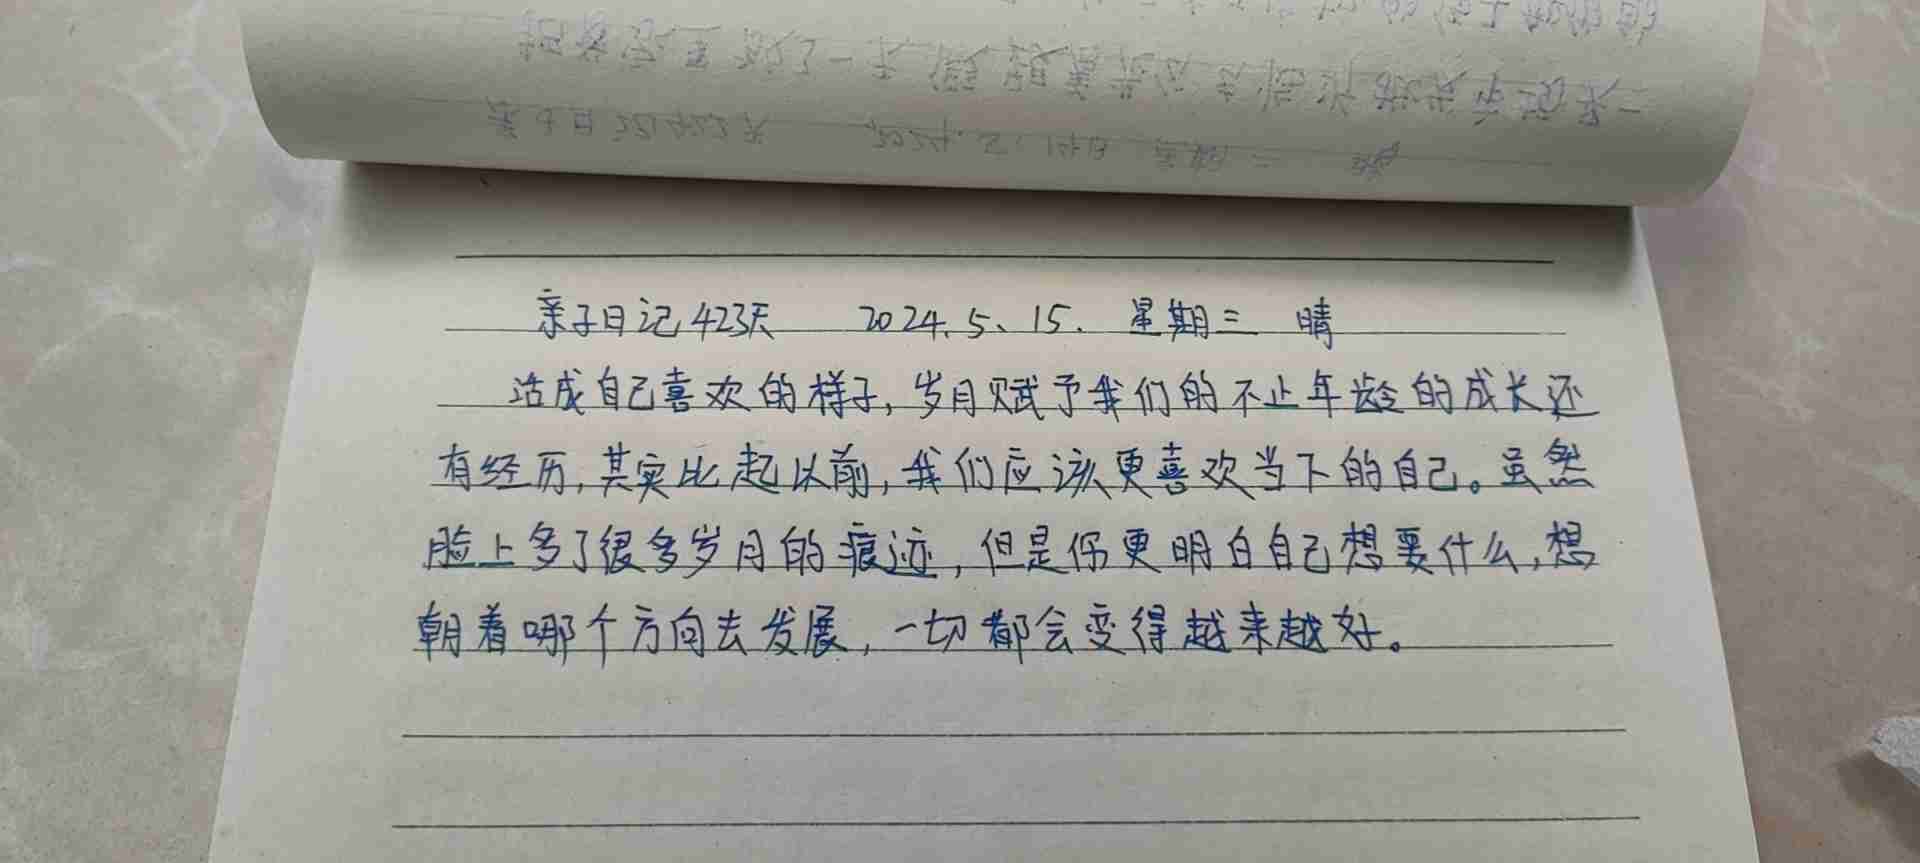 亲子日记423天 2024.5、15. 星期三 晴
活成自己喜欢的样子,岁月赋予我们的不止年龄的成长还
有经历,其实比起以前,我们应该更喜欢当下的自己。虽然
脸上多了很多岁月的痕迹,但是你更明白自己想要什么,想
朝着哪个方向去发展,一切都会变得越来越好。